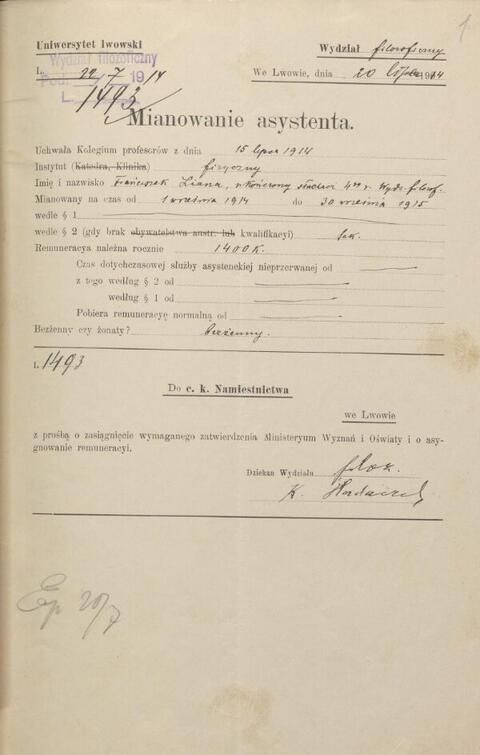 1
Uniwersytet lwowski
Wydział filozoficzny
Wydział filozoficzny
L. Pod. 22/7 1914
L. 1493
We Lwowie, dnia 20 lipca 1914
Mianowanie asystenta.
Uchwała Kolegium profesorów z dnia 15 lipca 1914
Instytut (Katedra, Klinika) fizyczny
Imię i nazwisko Franciszek Liana, ukończony słuchacz 4go r. Wydz. filozof.
Mianowany na czas od 1 września 1914 do 30 września 1915
wedle § 1
wedle § 2 (gdy brak obywatelstwa austr. lub kwalifikacyi) tak
Remuneracya należna rocznie 1400 K.
Czas dotychczasowej służby asystenckiej nieprzerwanej od
z tego według § 2 od
według § 1 od
Pobiera remuneracyę normalną od
Bezżenny czy żonaty? bezżenny.
L. 1493
Do c. k. Namiestnictwa
we Lwowie
z prośbą o zasiągnięcie wymaganego zatwierdzenia Ministeryum Wyznań i Oświaty i o asy-
gnowanie remuneracyi.
Dziekan Wydziału filoz.
K.
Exp 20/7